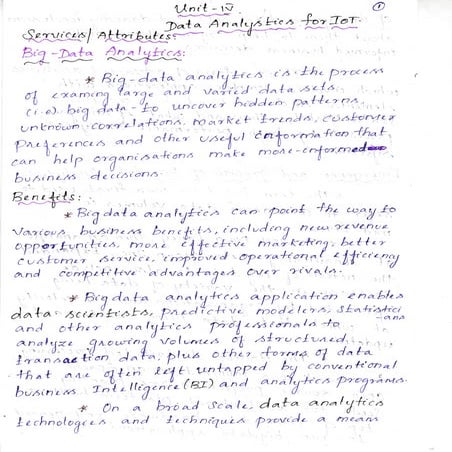 Unit-IV
①
Data Analystics for IoT.
Services/Attributes:
Big-Data Analytics:
* Big-data analytics is the process
of examing large and varied data sets
(i.e) big data - to uncover hidden patterns,
unknown correlations, market trends, customer
preferences and other useful information that
can help organisations make more-informed
business decisions.
Benefits:
* Big data analytics can point the way to
various business benefits, including new revenue
opportunities, more effective marketing, better
customer service, improved operational efficiency
and competitive advantages over rivals.
* Big data analytics application enables
data scientists, predictive modelers, statistici
-ans
and other analytics professionals to
analyze growing volumes of structured
transaction data, plus other forms of data
that are often left untapped by conventional
business Intelligence (BI) and analytics programs.
* On a broad scale, data analytics
technologies and techniques provide a means